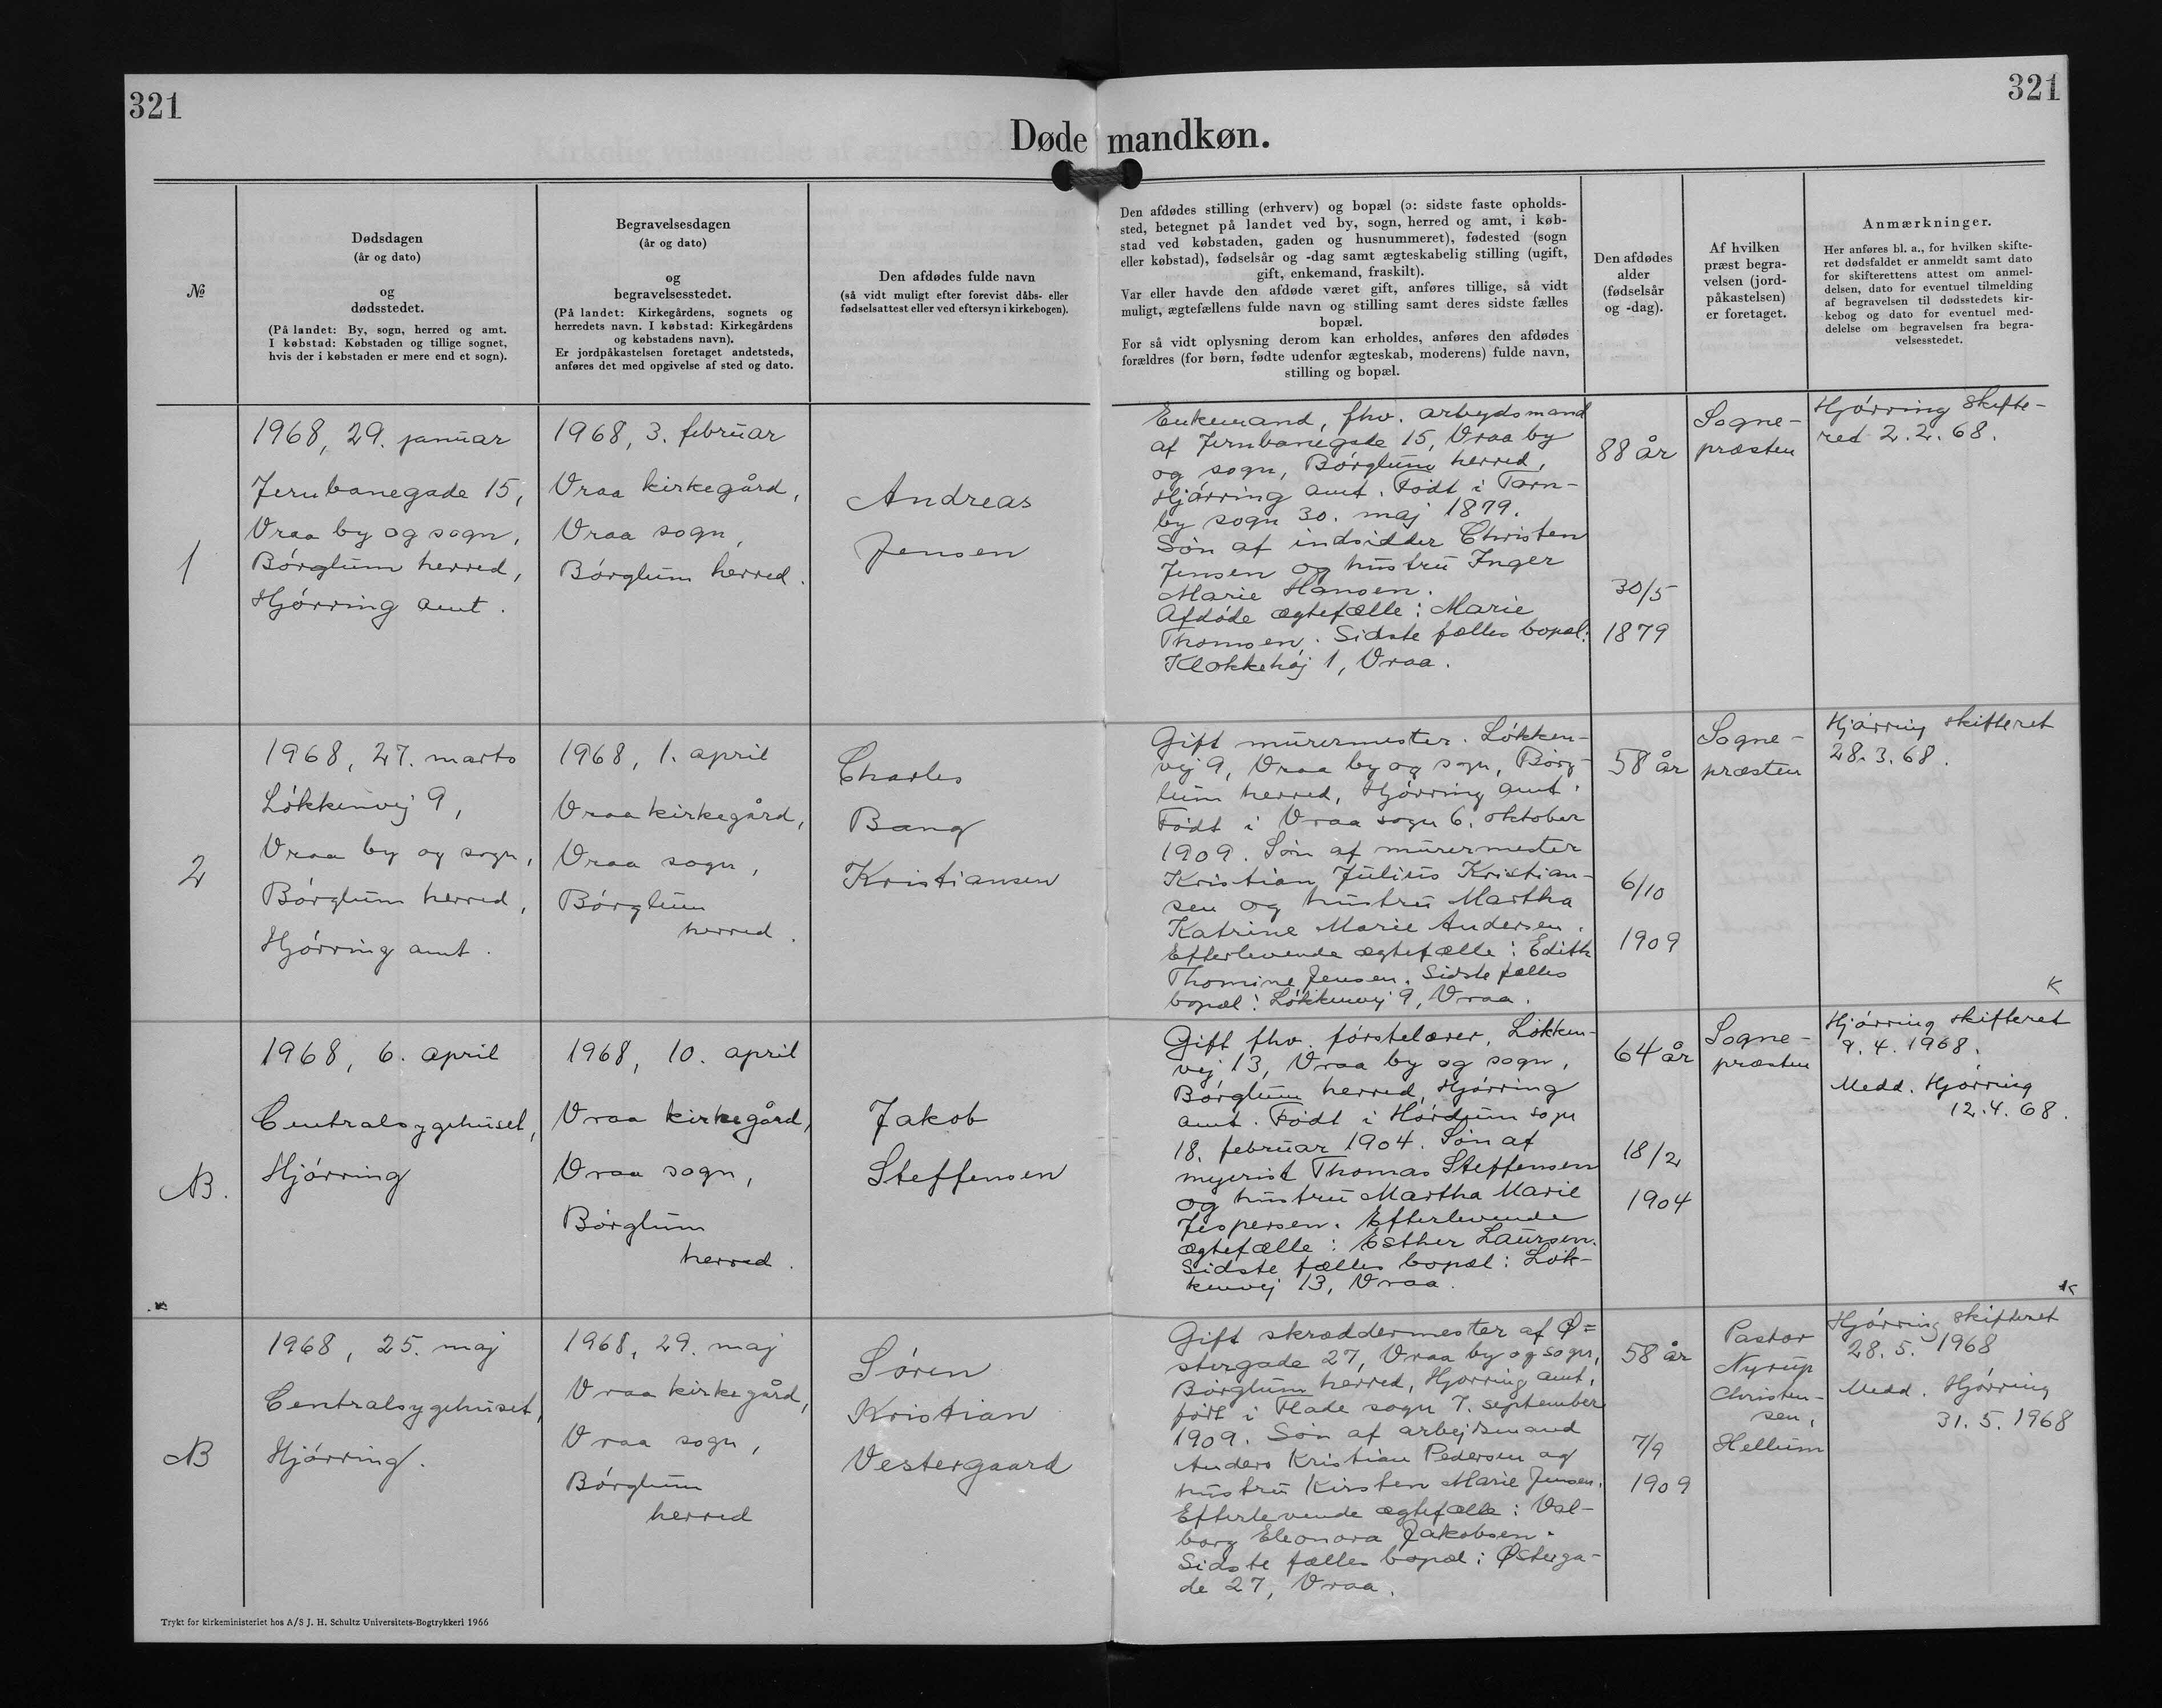 321
321
Døde mandkøn.
№
Dødsdagen
(år og dato)
og
dødsstedet.
(På landet: By, sogn, herred og amt.
I købstad: Købstaden og tillige sognet,
hvis der i købstaden er mere end et sogn).
Begravelsesdagen
(år og dato)
og
begravelsesstedet.
(På landet: Kirkegårdens, sognets og
herredets navn. I købstad: Kirkegårdens
og købstadens navn).
Er jordpåkastelsen foretaget andetsteds,
anføres det med opgivelse af sted og dato.
Den afdødes fulde navn
(så vidt muligt efter forevist dåbs- eller
fødselsattest eller ved eftersyn i kirkebogen).
Den afdødes stilling (erhverv) og bopæl (ɔ: sidste faste opholds-
sted, betegnet på landet ved by, sogn, herred og amt, i køb-
stad ved købstaden, gaden og husnummeret), fødested (sogn
eller købstad), fødselsår og -dag samt ægteskabelig stilling (ugift,
gift, enkemand, fraskilt).
Var eller havde den afdøde været gift, anføres tillige, så vidt
muligt, ægtefællens fulde navn og stilling samt deres sidste fælles
bopæl.
For så vidt oplysning derom kan erholdes, anføres den afdødes
forældres (for børn, fødte udenfor ægteskab, moderens) fulde navn,
stilling og bopæl.
Den afdødes
alder
(fødselsår
og -dag).
Af hvilken
præst begra-
velsen (jord-
påkastelsen)
er foretaget.
Anmærkninger.
Her anføres bl. a., for hvilken skifte-
ret dødsfaldet er anmeldt samt dato
for skifterettens attest om anmel-
delsen, dato for eventuel tilmelding
af begravelsen til dødsstedets kir-
kebog og dato for eventuel med-
delelse om begravelsen fra begra-
velsesstedet.
1
1968, 29. januar
Jernbanegade 15,
Vraa by og sogn,
Börglum herred,
Hjörring amt.
1968, 3. februar
Vraa kirkegård,
Vraa sogn,
Börglum herred.
Andreas
Jensen
Enkemand, fhv. arbejdsmand
af Jernbanegade 15, Vraa by
og sogn, Börglum herred,
Hjörring amt. Födt i Taarn-
by sogn 30. maj 1879.
Sön af indsidder Christen
Jensen og hustru Inger
Marie Hansen.
Afdöde ægtefælle: Marie
Thomsen. Sidste fælles bopæl:
Klokkehöj 1, Vraa.
88 år
30/5
1879
Sogne-
præsten
Hjörring skifte-
ret 2.2.68.
2
1968, 27. marts
Lökkenvej 9,
Vraa by og sogn,
Börglum herred,
Hjörring amt.
1968, 1. april
Vraa kirkegård,
Vraa sogn,
Börglum
herred.
Charles
Bang
Kristiansen
Gift murermester. Lökken-
vej 9, Vraa by og sogn, Börg-
lum herred, Hjörring amt.
Födt i Vraa sogn 6. oktober
1909. Sön af murermester
Kristian Julius Kristian-
sen og hustru Martha
Katrine Marie Andersen.
Efterlevende ægtefælle: Edith
Thomine Jensen. Sidste fælles
bopæl: Lökkenvej 9, Vraa.
58 år
6/10
1909
Sogne-
præsten
Hjörring skifteret
28.3.68.
K
NB.
1968, 6. april
Centralsygehuset,
Hjörring
1968, 10. april
Vraa kirkegård,
Vraa sogn,
Börglum
herred.
Jakob
Steffensen
Gift fhv. förstelærer, Lökken-
vej 13, Vraa by og sogn,
Börglum herred, Hjörring
amt. Födt i Hördum sogn
18. februar 1904. Sön af
mejerist Thomas Steffensen
og hustru Martha Marie
Jespersen. Efterlevende
ægtefælle: Esther Laursen.
Sidste fælles bopæl: Lök-
kenvej 13, Vraa.
64 år
18/2
1904
Sogne-
præsten
Hjörring skifteret
9.4.1968.
Medd. Hjörring
12.4.68.
K
NB
1968, 25. maj
Centralsygehuset,
Hjörring.
1968, 29. maj
Vraa kirkegård,
Vraa sogn,
Börglum
herred
Sören
Kristian
Vestergaard
Gift skræddermester af Ø=
stergade 27, Vraa by og sogn,
Börglum herred, Hjörring amt,
födt i Flade sogn 7. september
1909. Sön af arbejdsmand
Anders Kristian Pedersen og
hustru Kirsten Marie Jensen.
Efterlevende ægtefælle: Val-
borg Eleonora Jakobsen.
Sidste fælles bopæl: Østerga-
de 27, Vraa.
58 år
7/9
1909
Pastor
Nyrup
Christen-
sen,
Hellum
Hjörring skifteret
28.5.1968
Medd. Hjörring
31.5.1968
Trykt for kirkeministeriet hos A/S J. H. Schultz Universitets-Bogtrykkeri 1966